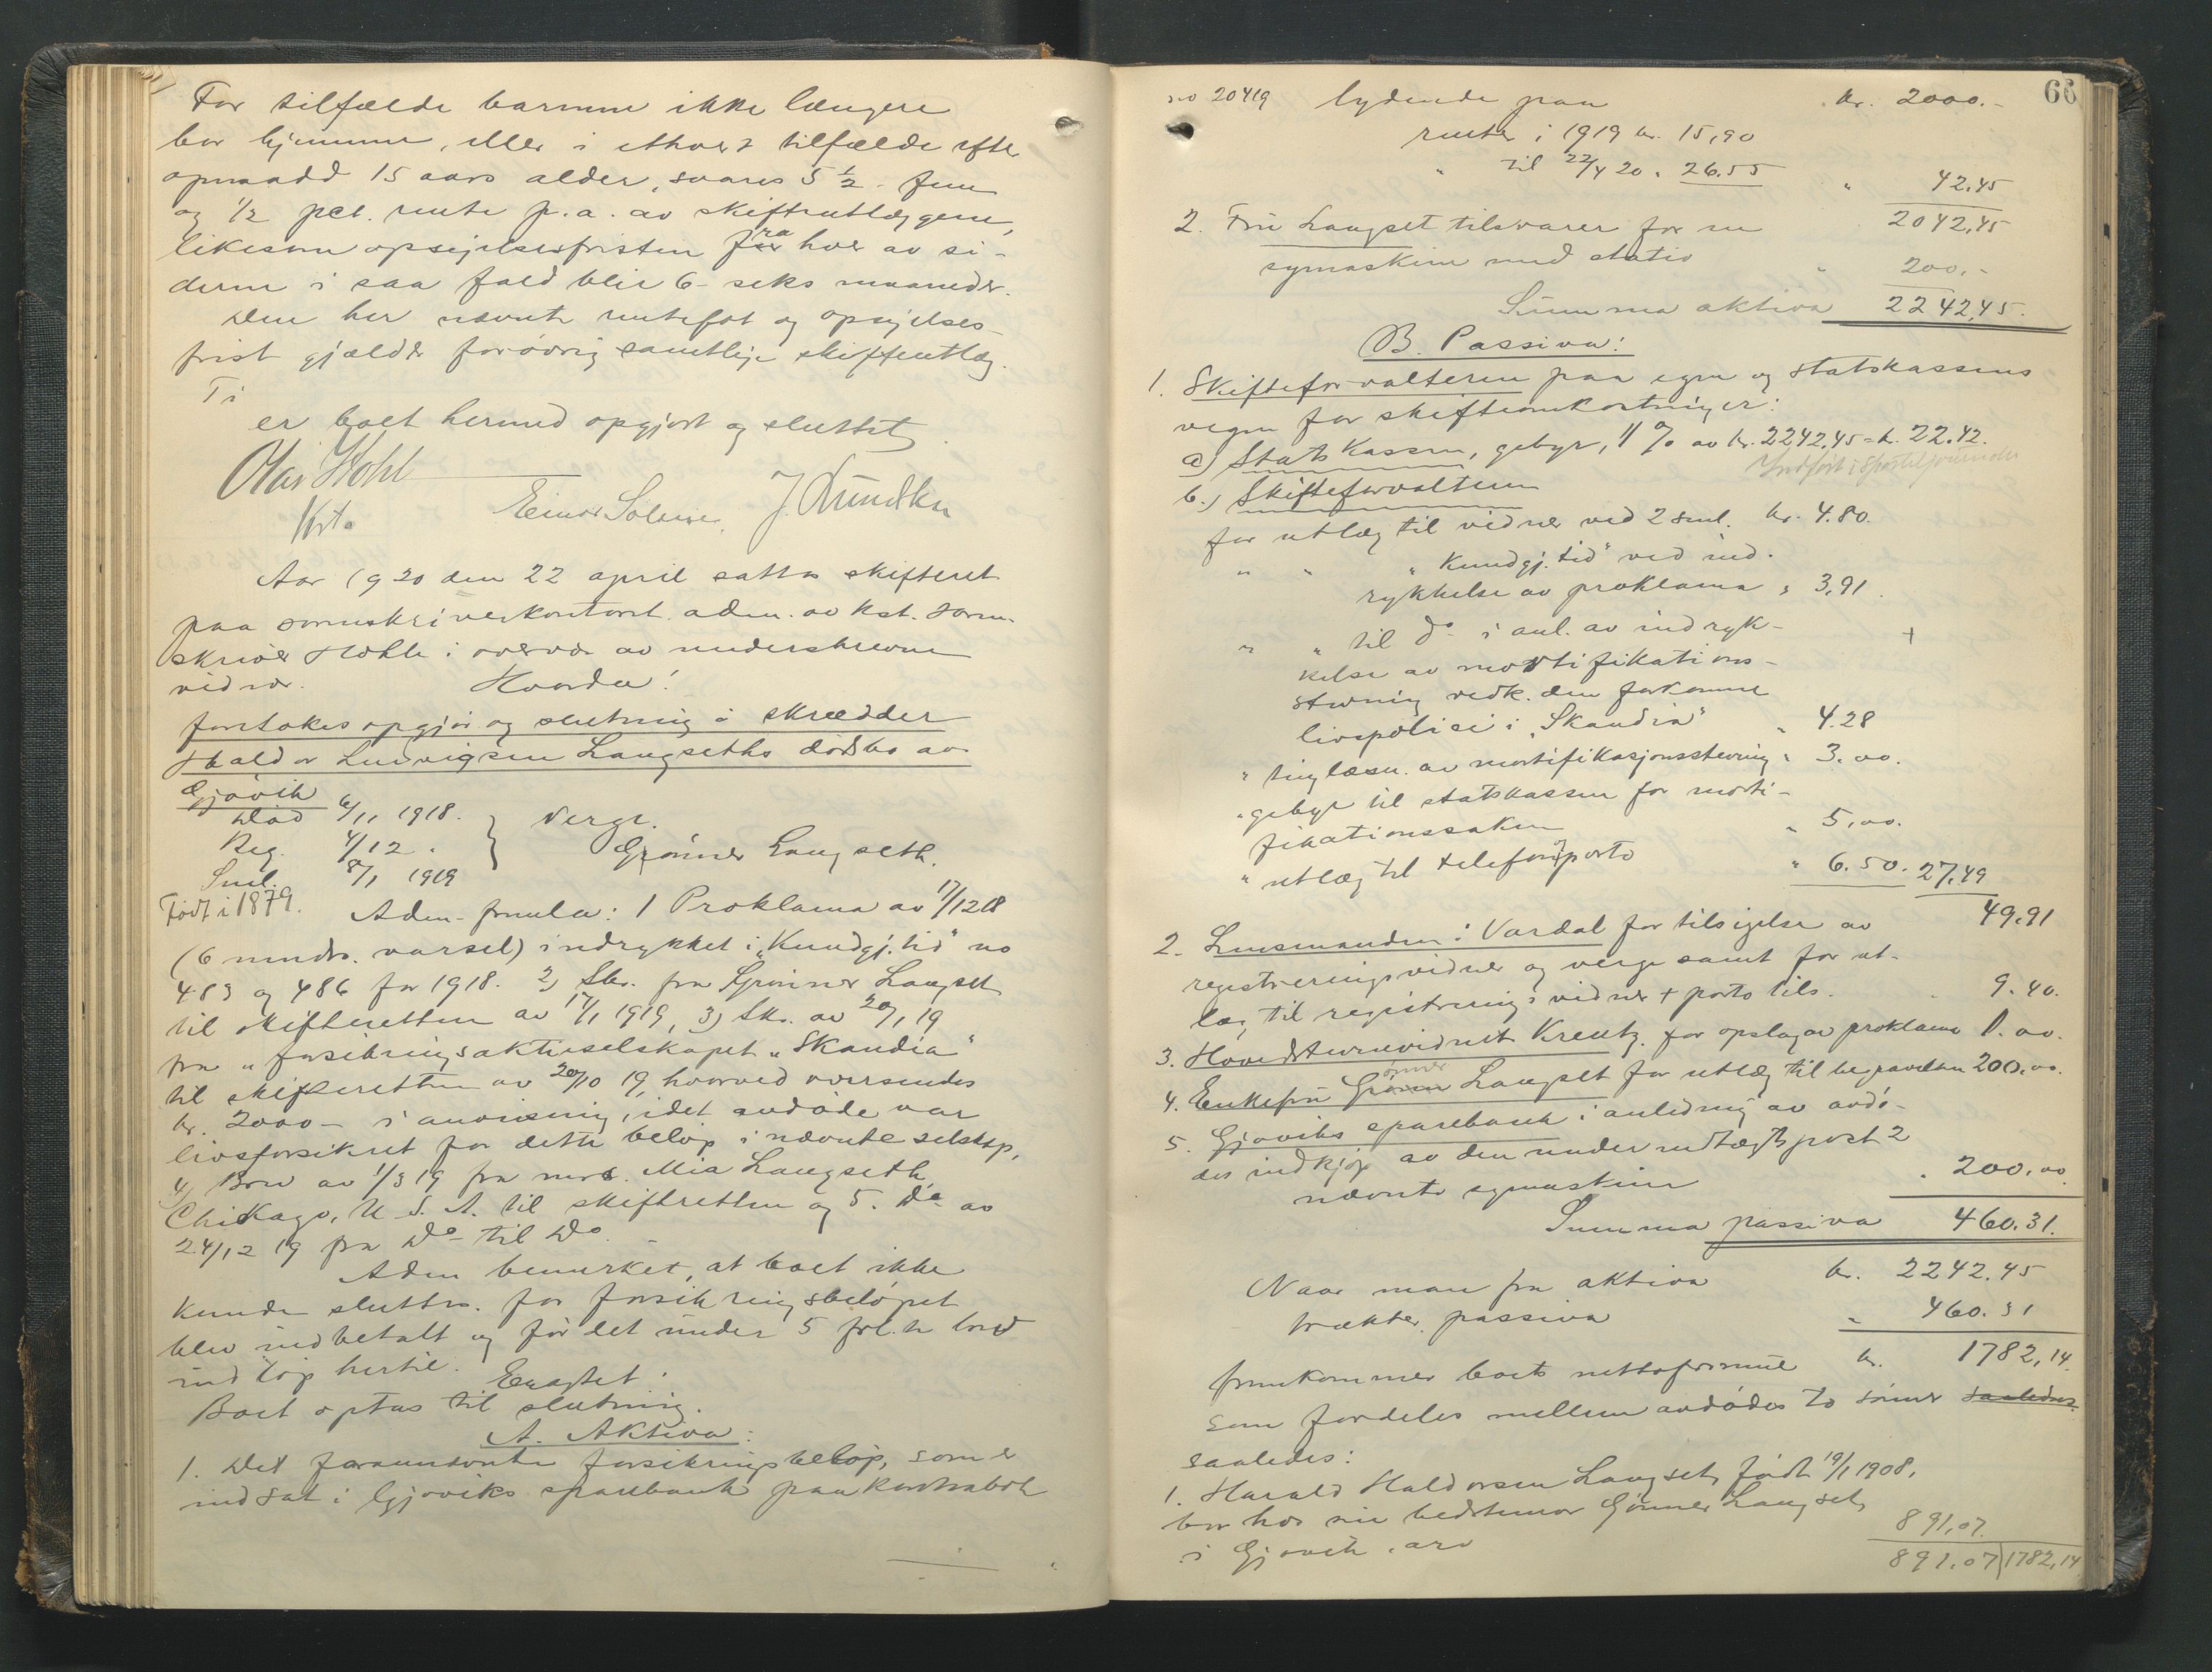 For tilfælde barnene ikke længere
bor hjemme, eller i ethvert tilfælde efter
opnaadd 15 aars alder, svares 5 ½ - fem
og ½ pct. rente p. a. av skifteutlæggene,
likesom opsigelsesfristen fra hver av si-
derne i saa fald blir 6 - seks maaneder.
Den her nævnte rentefot og opsigelses-
frist gjælder forøvrig samtlige skifteutlæg.
Ti
er boet hermed opgjort og sluttet
Olai Hohl
Kst.
Einar Solerne. J. Lundku
Aar 1920 den 22 april sattes skifteret
paa sorenskriverkontoret adm. av kst. soren-
skriver Hohle i overvær av underskrevne
vidner. Hvorda!
foretokes opgjør og slutning i skrædder
Haldor Ludvigsen Langseths dødsbo av
Gjøvik
Død 6/11 1918. } Verge.
Reg. 4/12 . Grønner Langseth.
Sml. 8/1 1919
Født i 1879.
Adm. fremla: 1 Proklama av 17/12 18
(6 mndrs. varsel) indrykket i "Kundgj. tid" no
483 og 486 for 1918. 2) Skr. fra Grønner Langset
til skifteretten av 17/1 1919, 3) Skr. av 20/1 19
fra "forsikringsaktieselskapet "Skandia"
til skifteretten av 20/10 19, hvorved oversendes
kr. 2000 - i anvisning, idet avdøde var
livsforsikret for dette beløp i nævnte selskap,
4) Brev av 1/3 19 fra mrs. Mia Langseth,
Chikago, U. S. A. til skifteretten og 5. Do av
24/12 19 fra Do til Do.
Adm bemerket, at boet ikke
kunde sluttes. før forsikringsbeløpet
blev indbetalt og før det under 5 frl.te brev
indløp hertil. Eragtet:
Boet optas til slutning.
A. Aktiva:
1. Det forannævnte forsikringsbeløp, som er
indsat i Gjøviks sparebank paa kontrabok
66
no 20419 lydende paa kr. 2000.-
rente i 1919 kr. 15,90
" til 22/4 20 " 26.55 " 42.45
2042,45
2. Fru Langset tilsvarer for en
symaskine med stativ " 200.-
Summa aktiva 2242,45.
B. Passiva:
1. Skifteforvalteren paa egne og statskassens
vegne for skifteomkostninger:
a) Statskassen, gebyr, 1 % av kr. 2242,45 = k. 22.42.
Indført i sporteljournalen
b.) Skifteforvalteren
for utlæg til vidner ved 2 sml. kr. 4.80.
" " " Kundgj. tid" ved ind-
rykkelse av proklama " 3,91.
" " til do i anl. av indryk-
kelse av mortifikations-
stevning vedk. den forkomne
livspolise i "Skandia" " 4.28
+
" tinglæsn. av mortifikasjonsstevning " 3.00.
" gebyr til statskassen for morti-
fikationssaken " 5,00.
" utlæg til telefon & porto " 6.50. 27,49
49.91
2. Lensmanden i Vardal for tilsigelse av
registreringsvidner og verge samt for ut-
læg til registreringsvidner + porto tils. " 9.40.
3. Hovedstevnevidnet Kreutz. for opslag av proklama 1.00.
4. Enkefru Grønner Langset for utlæg til begravelsen 200.00.
5. Gjøviks sparebank i anledning av avdø-
des indkjøp av den under indtægtspost 2
nævnte symaskine " 200.00
Summa passiva 460.31.
Naar man fra aktiva kr. 2242.45
trækker passiva " 460.31
fremkommer boets nettoformue kr. 1782,14.
som fordeles mellem avdødes to sønner saaledes
saaledes:
1. Harald Haldorsen Langset, født 19/1 1908,
bor hos sin bedstemor Gønner Langset,
i Gjøvik, arv 891,07.
891.07 | 1782,14